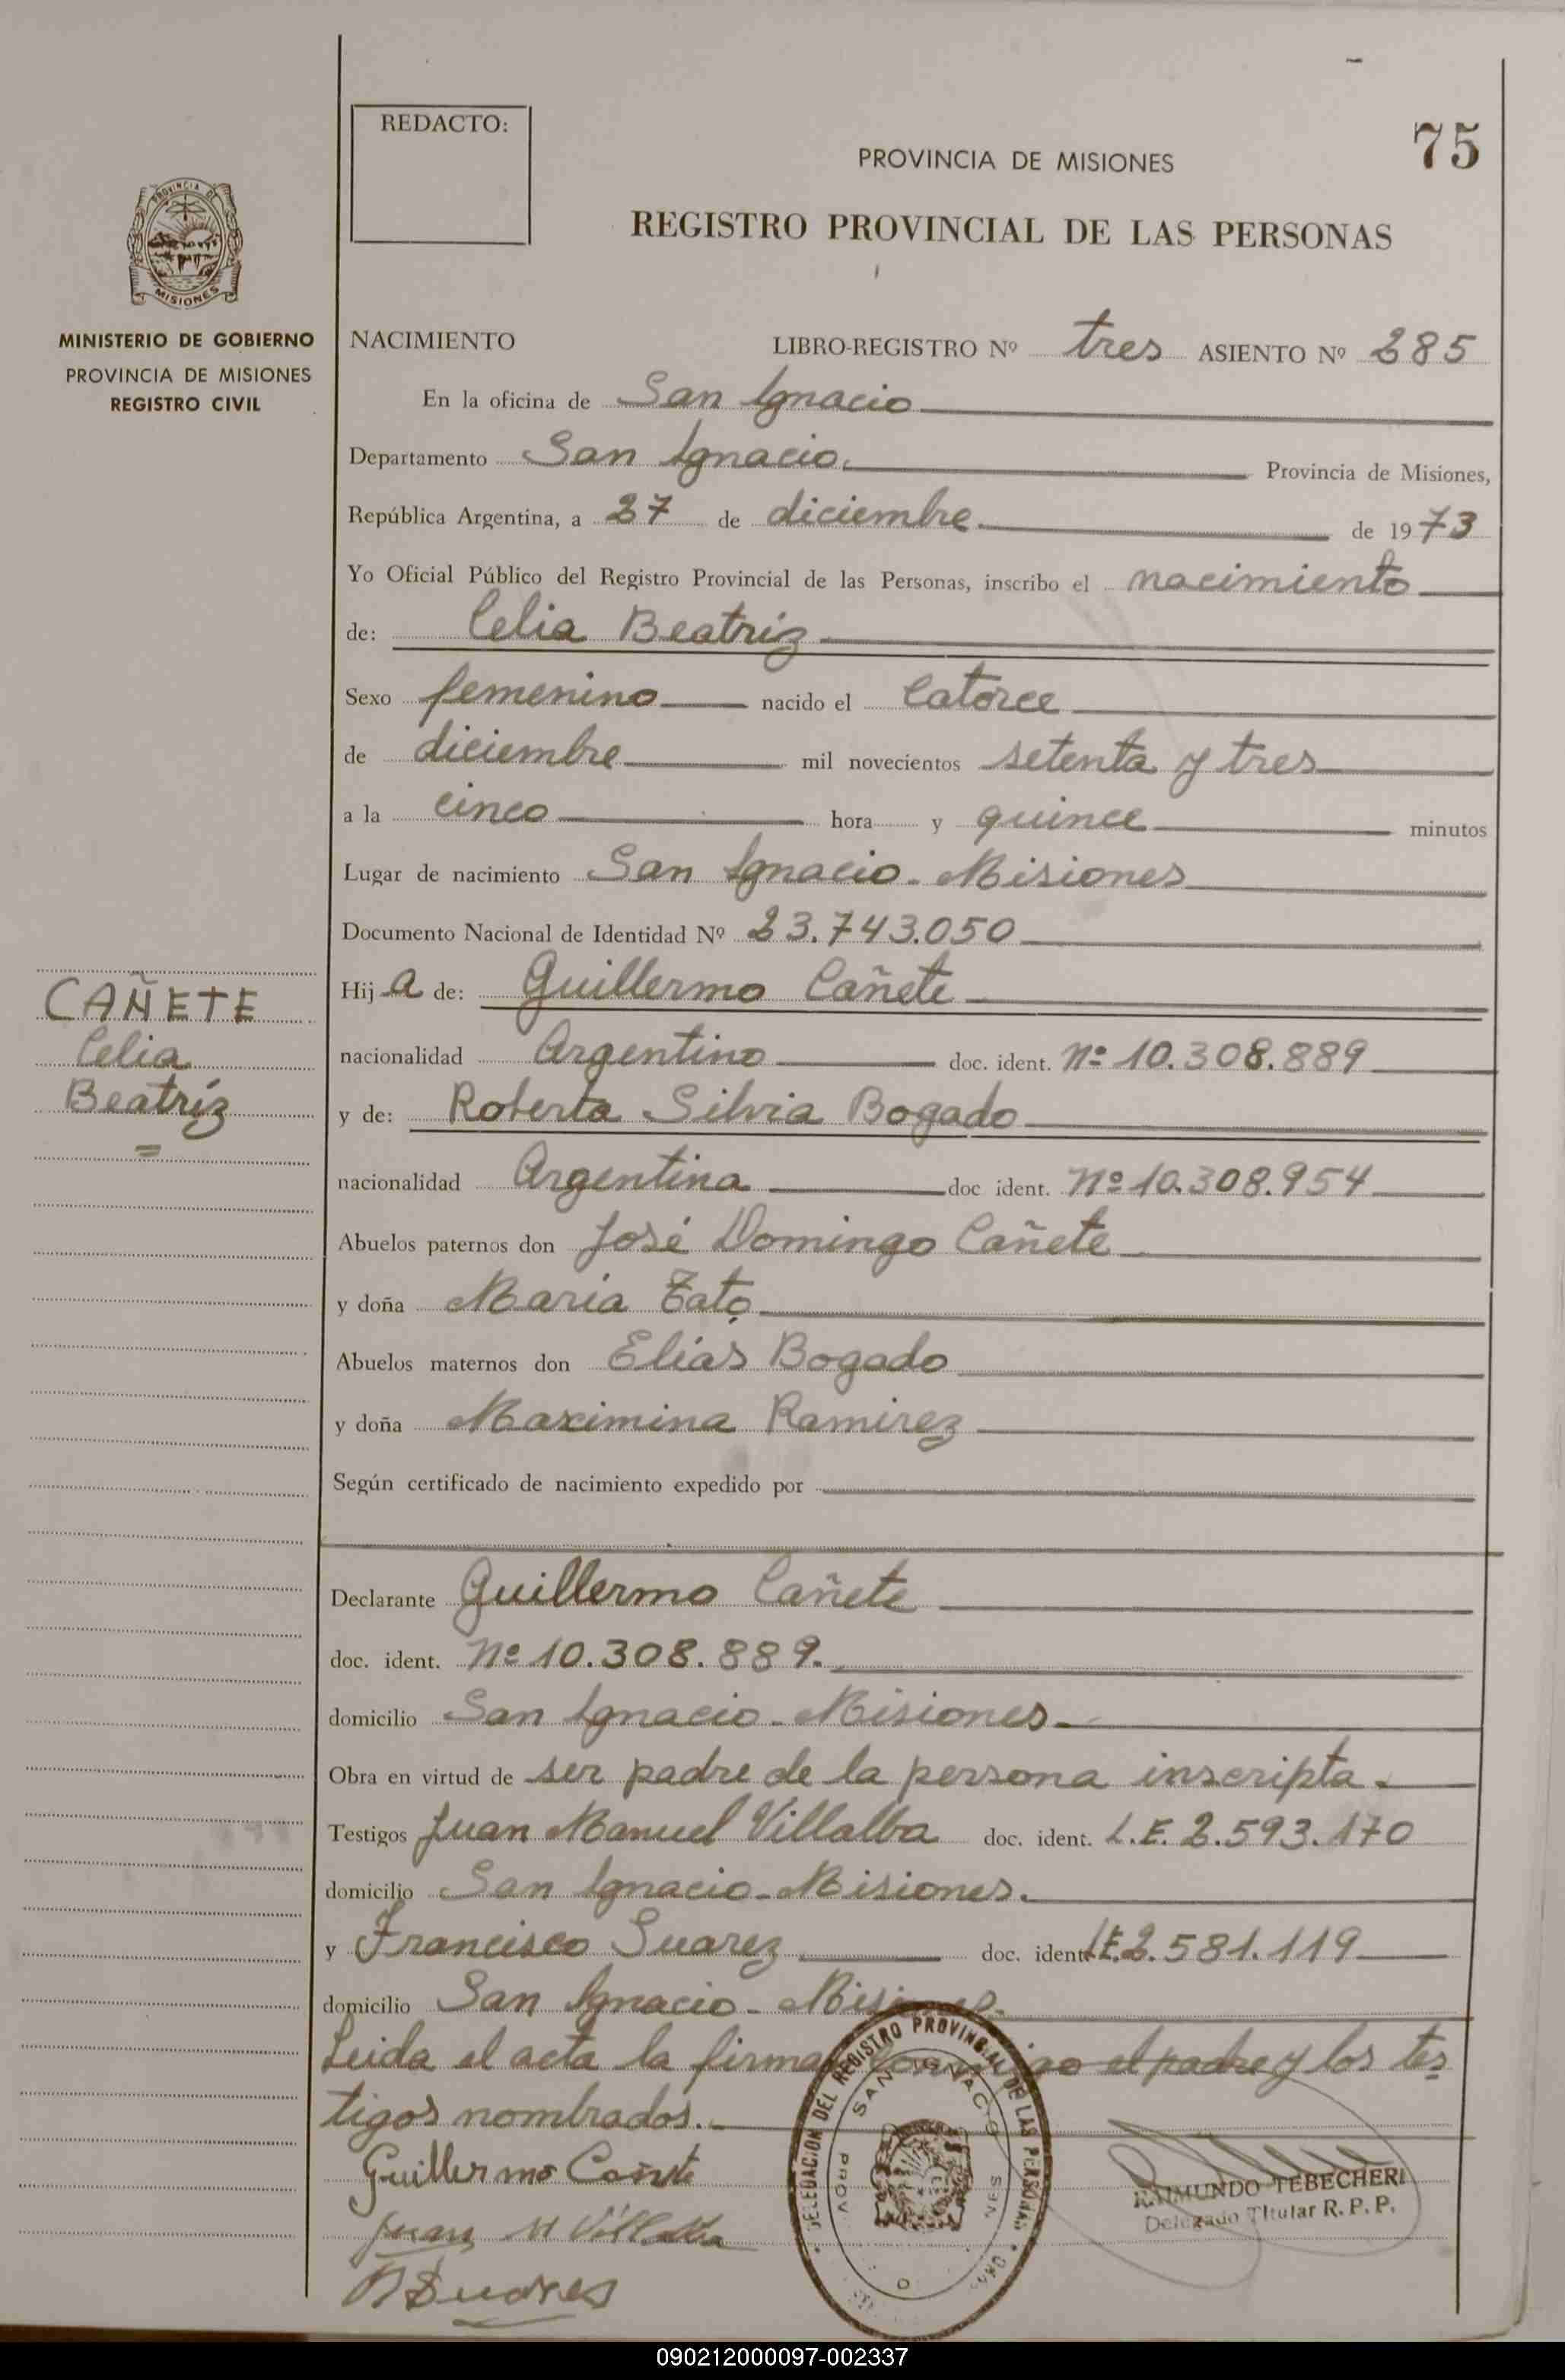 REDACTO:
75
PROVINCIA DE MISIONES
REGISTRO PROVINCIAL DE LAS PERSONAS
PROVINCIA DE
MISIONES
MINISTERIO DE GOBIERNO
PROVINCIA DE MISIONES
REGISTRO CIVIL
NACIMIENTO LIBRO-REGISTRO Nº tres ASIENTO Nº 285
En la oficina de San Ignacio
Departamento San Ignacio. Provincia de Misiones,
República Argentina, a 27 de diciembre de 1973
Yo Oficial Público del Registro Provincial de las Personas, inscribo el nacimiento
de: Celia Beatriz
Sexo femenino nacido el Catorce
de diciembre mil novecientos setenta y tres
a la cinco hora y quince minutos
Lugar de nacimiento San Ignacio - Misiones
Documento Nacional de Identidad Nº 23.743.050
CAÑETE
Celia
Beatríz
=
Hija de: Guillermo Cañete
nacionalidad Argentino doc. ident. Nº 10.308.889
y de: Roberta Silvia Bogado
nacionalidad Argentina doc ident. Nº 10.308.954
Abuelos paternos don José Domingo Cañete
y doña Maria
Abuelos maternos don Elías Bogado
y doña Maximina Ramirez
Según certificado de nacimiento expedido por
Declarante Guillermo Cañete
doc. ident. Nº 10.308.889.
domicilio San Ignacio - Misiones.
Obra en virtud de ser padre de la persona inscripta.
Testigos Juan Manuel Villalba doc. ident. L.E. 2.593.170
domicilio San Ignacio - Misiones.
y Francisco Suarez doc. ident. L.E. 2.581.119
domicilio San Ignacio - Misiones.
Leida el acta la firman conmigo el padre y los tes
tigos nombrados.
Guillermo Cañete
Juan M Villalba
DELEGACION DEL REGISTRO PROVINCIAL DE LAS PERSONAS
SAN IGNACIO
PROV
RAIMUNDO TEBECHERI
Delegado Titular R. P. P.
090212000097-002337